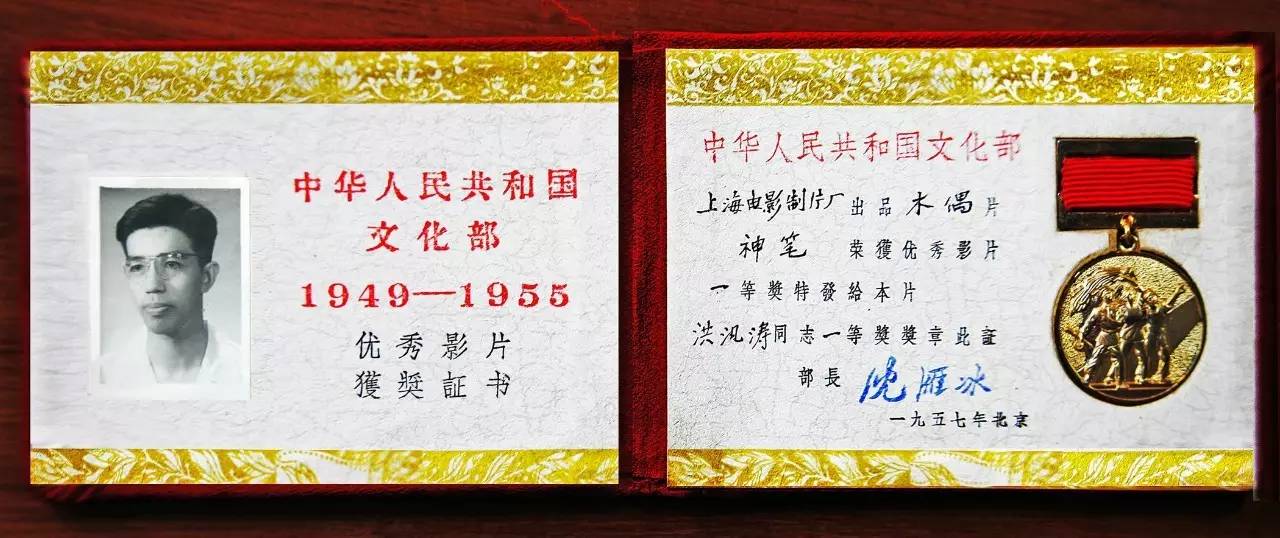 中华人民共和国
文化部
1949—1955
优秀影片
獲奬証书
中华人民共和国文化部
上海电影制片厂出品木偶片
神笔 荣獲优秀影片
一等奬特發給本片
洪汛涛同志一等奬奬章此証
部長 沈雁冰
一九五七年北京